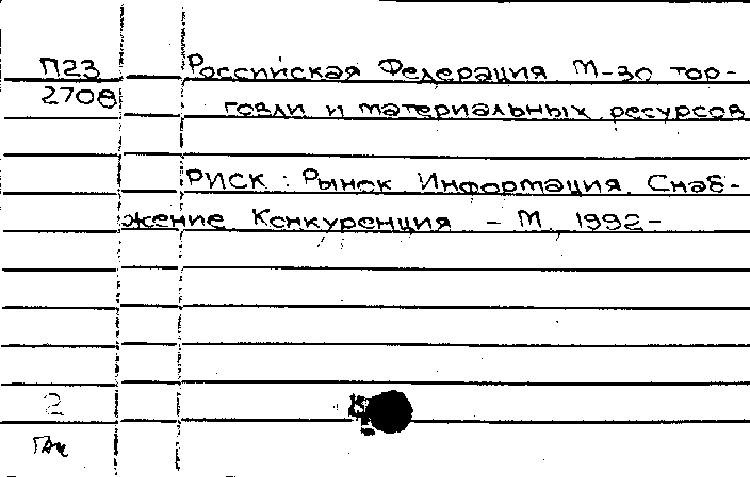 П23 Российская Федерация. М-во тор-
2708 говли и материальных ресурсов
РИСК : Рынок. Информация. Снаб-
жение. Конкуренция. - М., 1992-
2